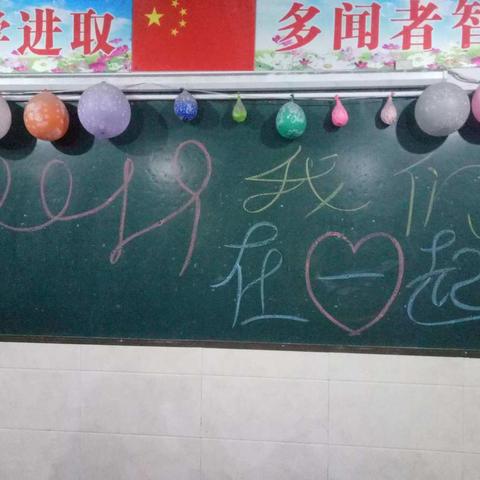 学进取
多闻者智
2019
我们
在一起